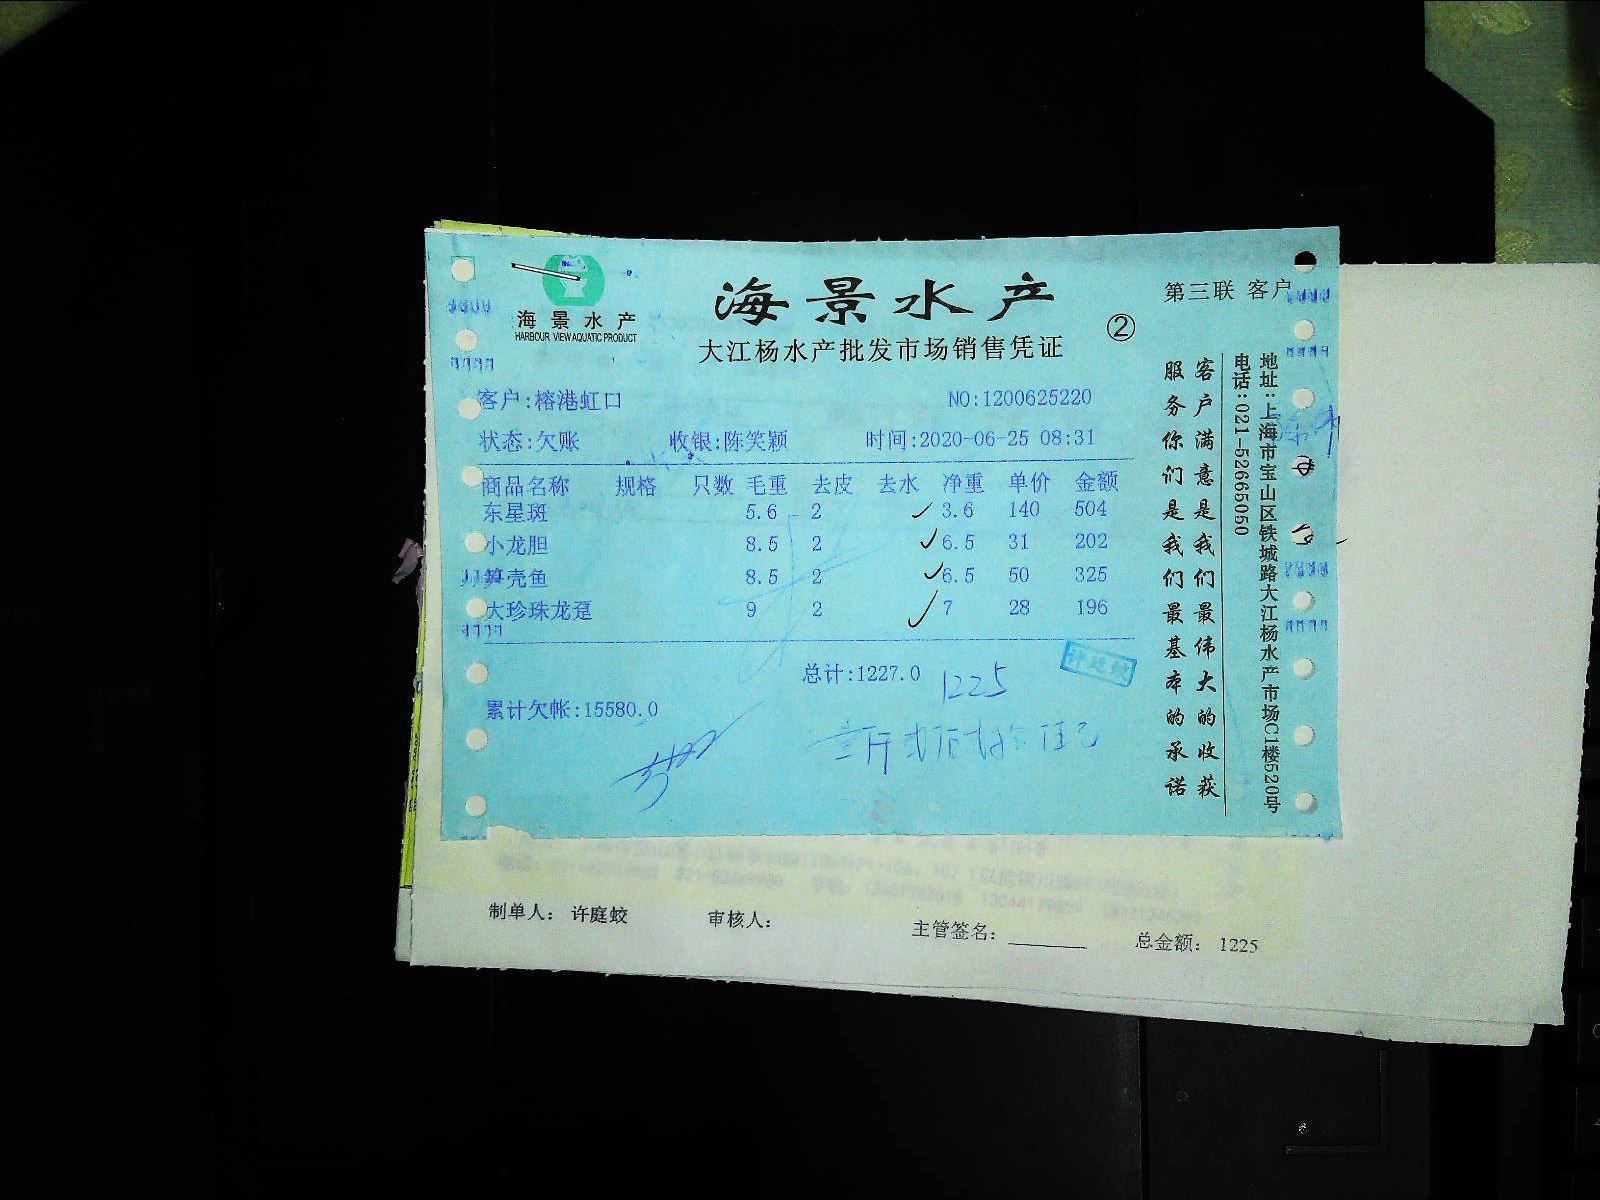 海景水产
HARBOUR VIEW AQUATIC PRODUCT
海景水产
大江杨水产批发市场销售凭证
②
第三联 客户
客户:榕港虹口
NO:1200625220
状态:欠账 收银:陈笑颖 时间:2020-06-25 08:31
商品名称 规格 只数 毛重 去皮 去水 净重 单价 金额
东星斑 5.6 2 3.6 140 504
小龙胆 8.5 2 6.5 31 202
笋壳鱼 8.5 2 6.5 50 325
大珍珠龙趸 9 2 7 28 196
总计:1227.0 1225
许庭蛟
累计欠帐:15580.0
壹仟贰佰贰拾伍元
客户满意是我们最伟大的收获
服务你们是我们最基本的承诺
地址:上海市宝山区铁城路大江杨水产市场C1楼520号
电话:021-52665050
制单人: 许庭蛟 审核人: 主管签名: 总金额: 1225